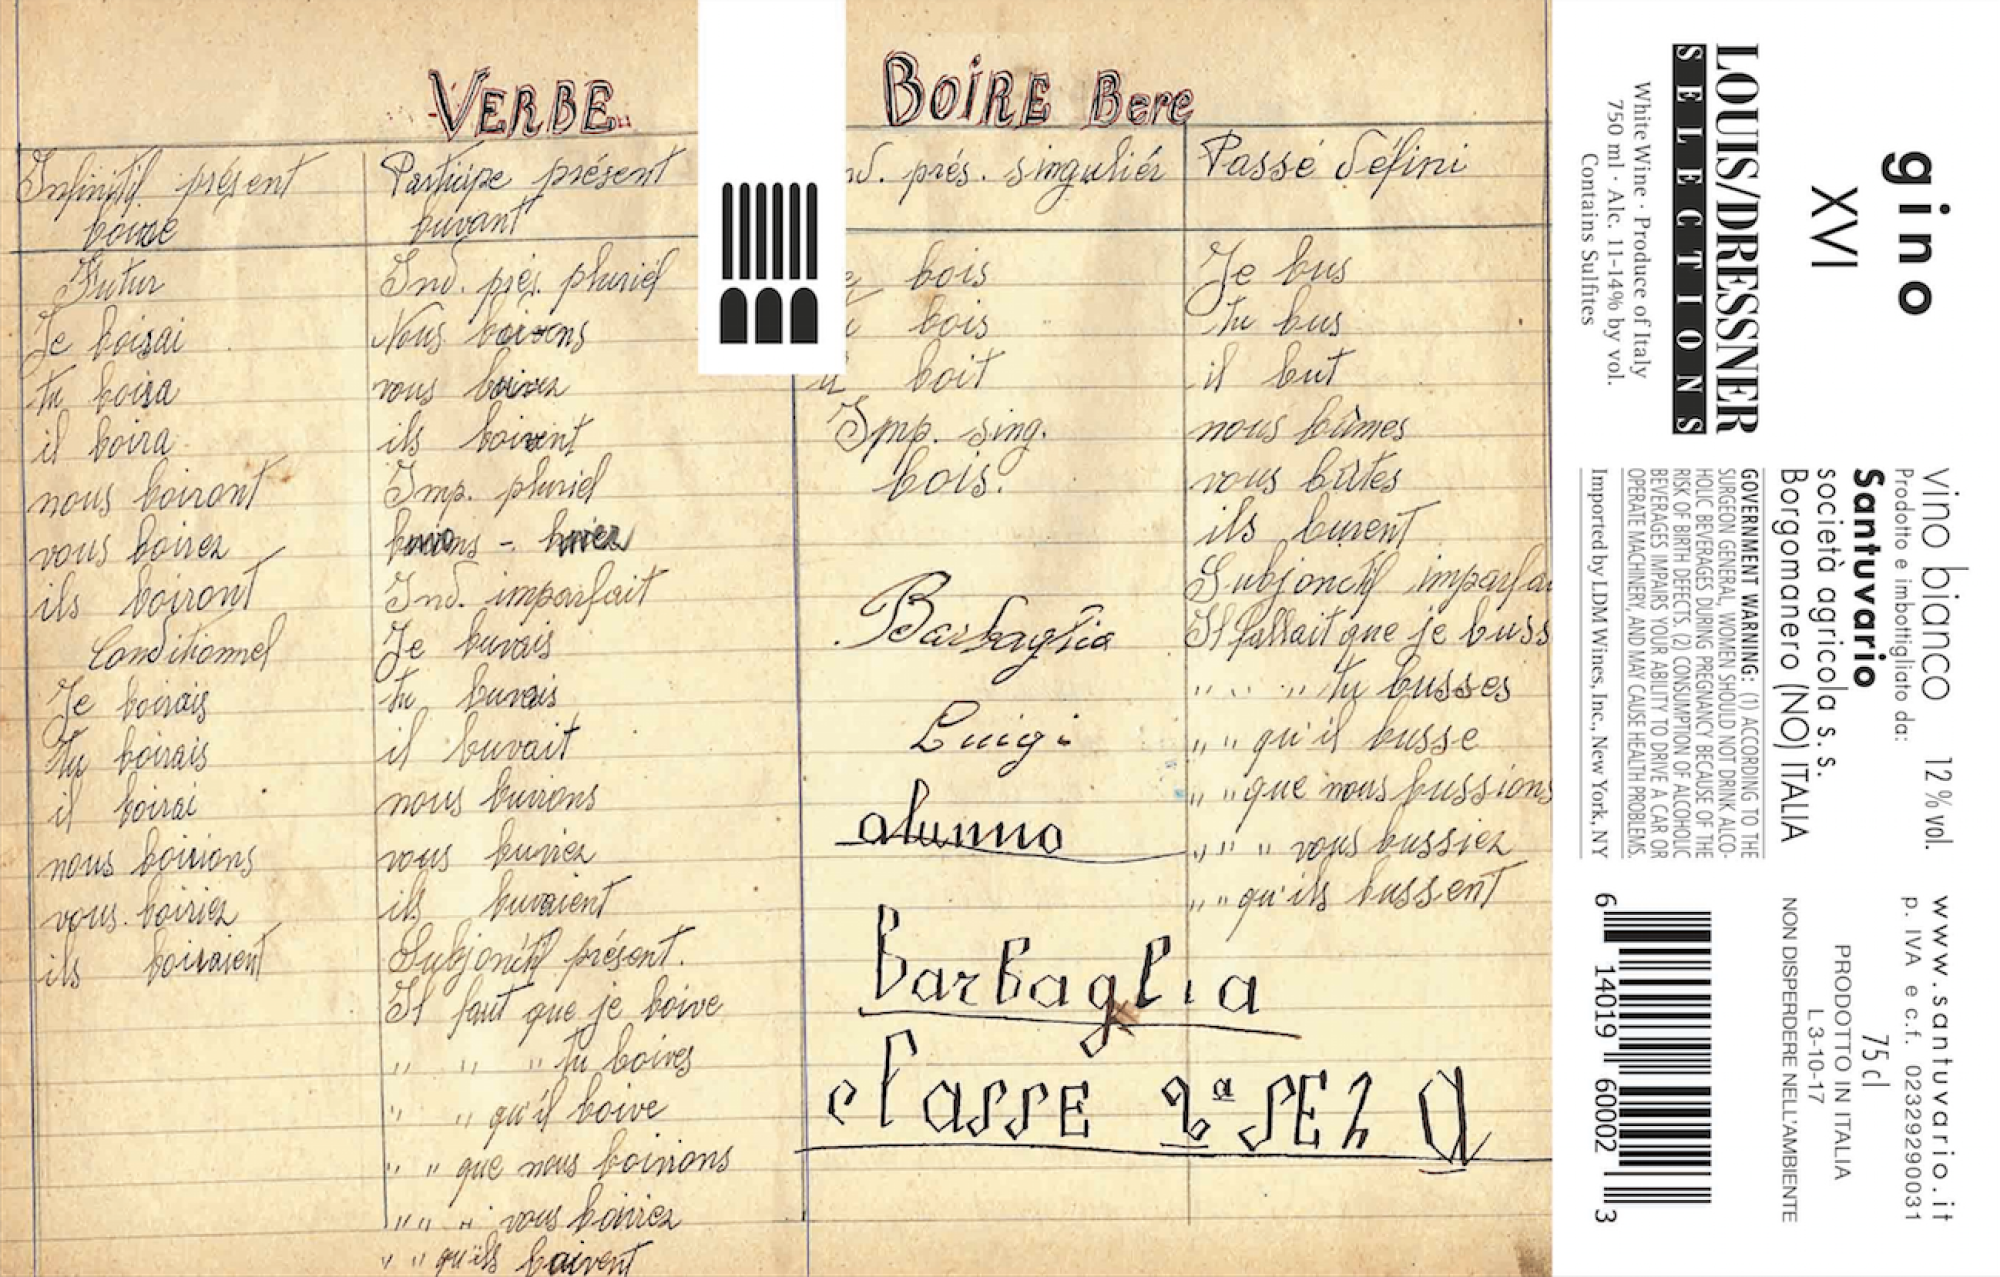 VERBE
BOIRE Bere
Infinitif présent
boire
Futur
Je boisai
tu boisa
il boira
nous boiront
vous boirez
ils boiront
Conditionnel
Je boirais
tu boirais
il boirai
nous boirions
vous boiriez
ils boiraient
Participe présent
buvant
Ind. prés. pluriel
Nous
vous
ils boivent
Imp. pluriel
Ind. imparfait
Je buvais
tu buvais
il buvait
nous buvions
vous buviez
ils buvaient
Subjonctif présent.
Il faut que je boive
" " " tu boives
" " qu'il boive
" " que nous
" " " vous
" " qu'ils boivent
d. prés. singuliér
bois
bois
boit
Imp. sing.
bois.
Barbaglia
Luigi
alunno
Barbaglia
classE 2ª SEZ a
Passé défini
Je bus
tu bus
il but
nous bûmes
vous bûtes
ils burent
Subjonctif imparfa
Il fallait que je buss
" " " tu busses
" " qu'il busse
" " que nous bussions
" " " vous bussiez
" " qu'ils bussent
gino
XVI
LOUIS/DRESSNER
SELECTIONS
White Wine · Produce of Italy
750 ml · Alc. 11-14% by vol.
Contains Sulfites
Vino bianco 12%vol.
Prodotto e imbottigliato da:
Santuvario
società agricola s.s.
Borgomanero (NO) ITALIA
GOVERNMENT WARNING: (1) ACCORDING TO THE
SURGEON GENERAL, WOMEN SHOULD NOT DRINK ALCO-
HOLIC BEVERAGES DURING PREGNANCY BECAUSE OF THE
RISK OF BIRTH DEFECTS. (2) CONSUMPTION OF ALCOHOLIC
BEVERAGES IMPAIRS YOUR ABILITY TO DRIVE A CAR OR
OPERATE MACHINERY, AND MAY CAUSE HEALTH PROBLEMS.
Imported by LDM Wines, Inc., New York, NY
www.santuvario.it
p. IVA e c.f. 02329290031
75cl
PRODOTTO IN ITALIA
L 3-10-17
NON DISPERDERE NELL'AMBIENTE
6 14019 60002 3